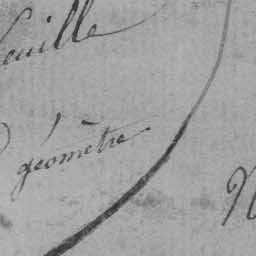 feuille
géomètre
N